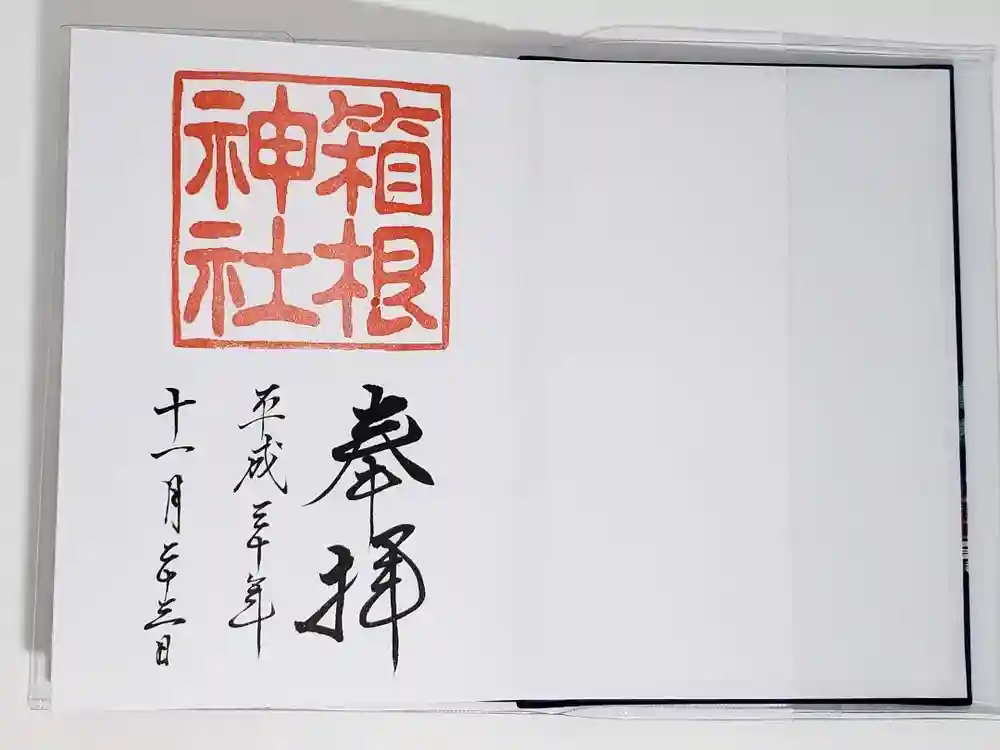 箱根
神社
奉拝
平成三十年
十一月二十三日